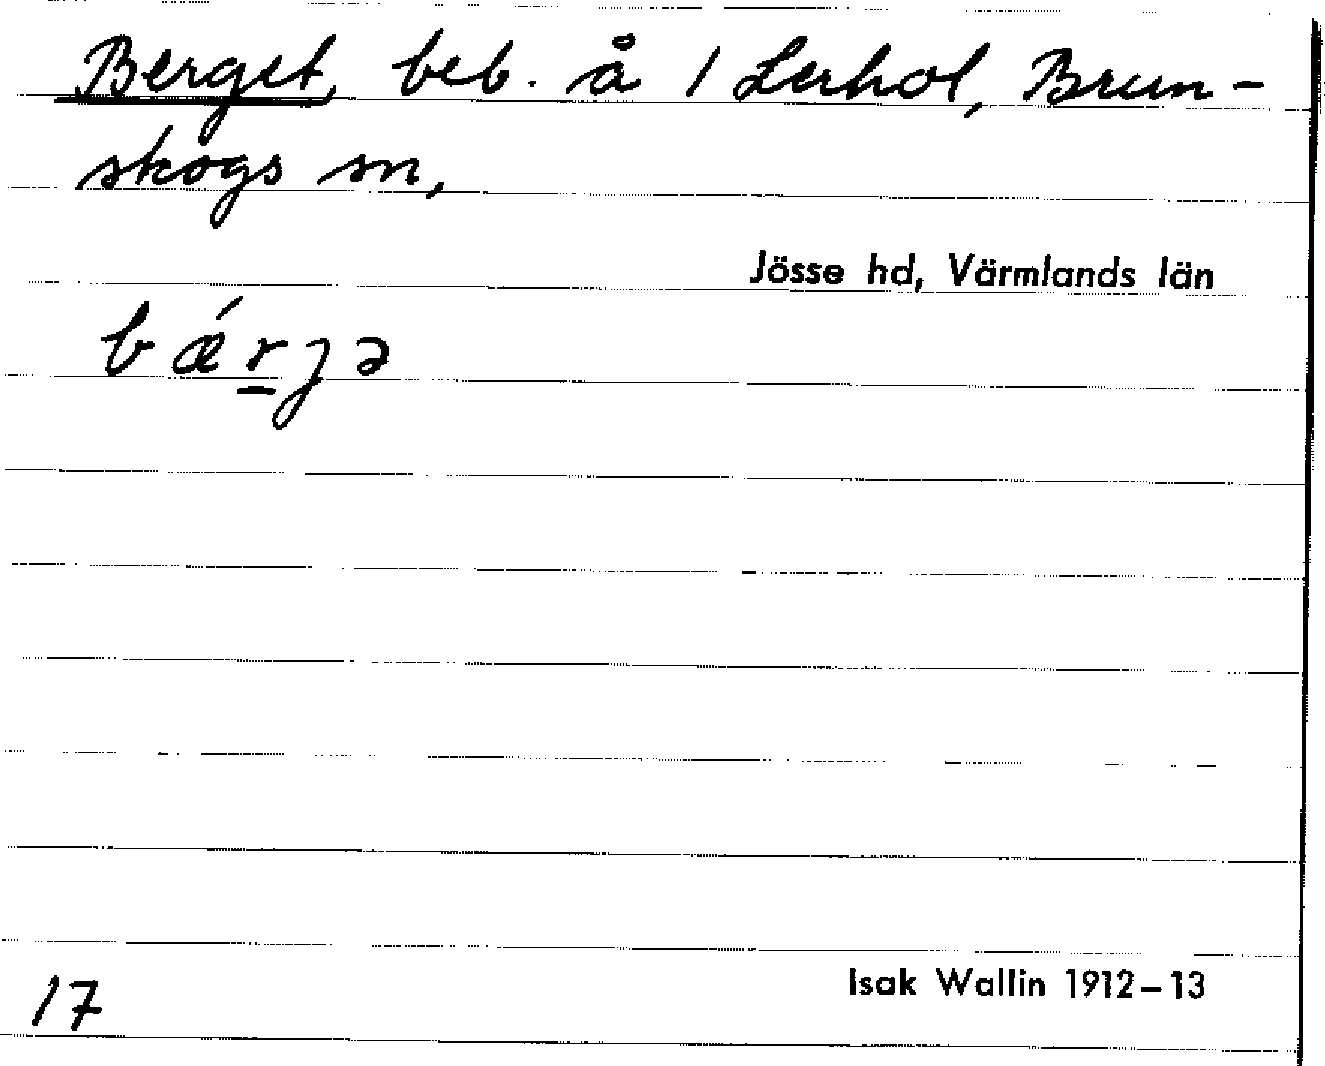 Berget, beb. å 1 Lerhol, Brun-
skogs sn,
Jösse hd, Värmlands län
bǽr̲jə
Isak Wallin 1912–13
17